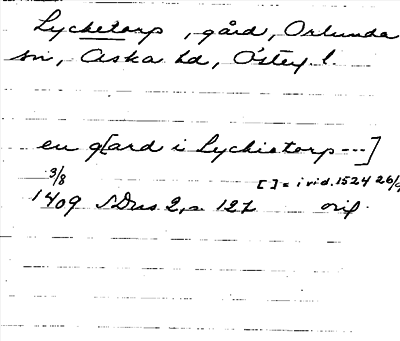 Lycketorp, gård, Orlunda
sn, Aska hd, Östeg.l.
en g[ard i Lychiotorp ---]
3/8 [ ] = i vid. 1524 26/9
1409 SDns 2, s. 127 orig.